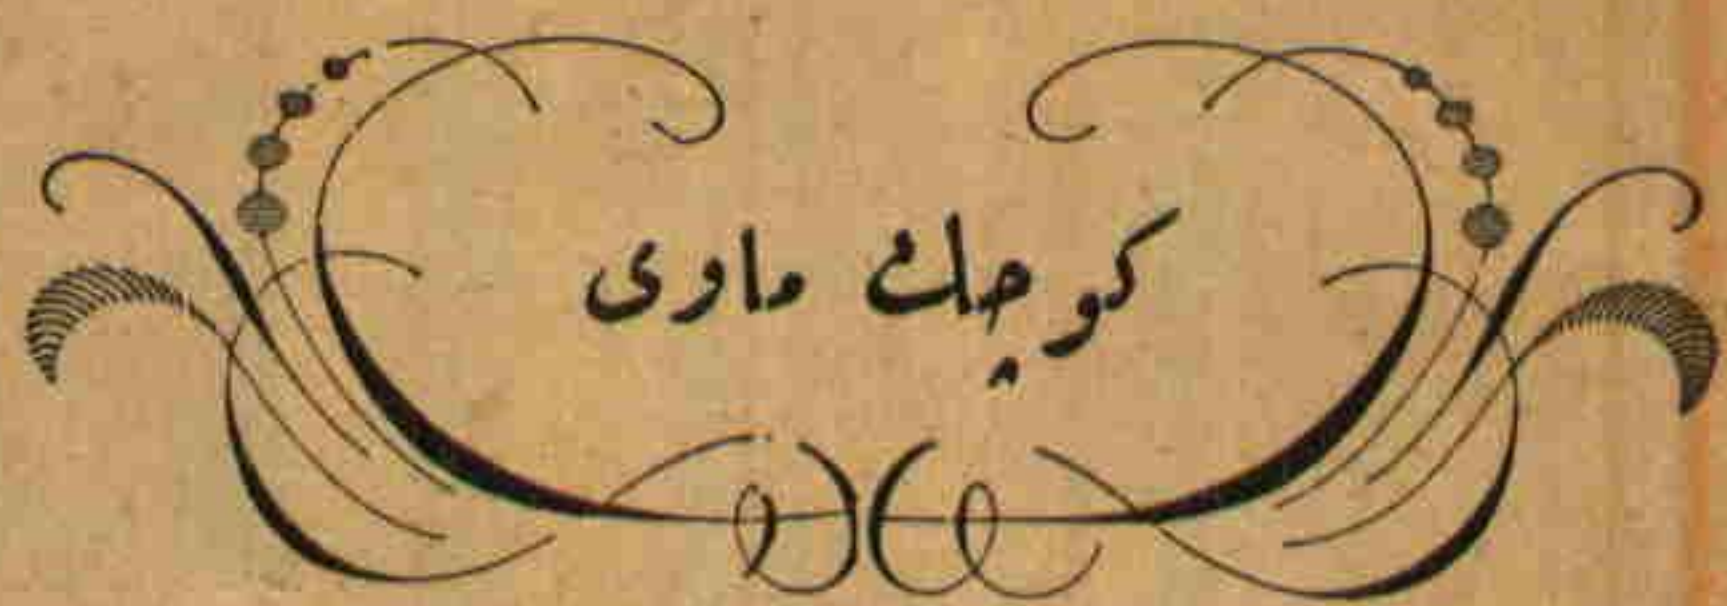 كوچك ماوى